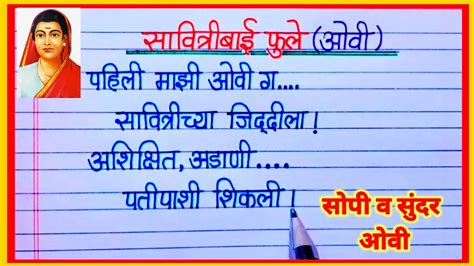 सावित्रीबाई फुले (ओवी)
पहिली माझी ओवी ग....
सावित्रीच्या जिद्दीला!
अशिक्षित, अडाणी....
पतीपाशी शिकली।
सोपी व सुंदर
ओवी